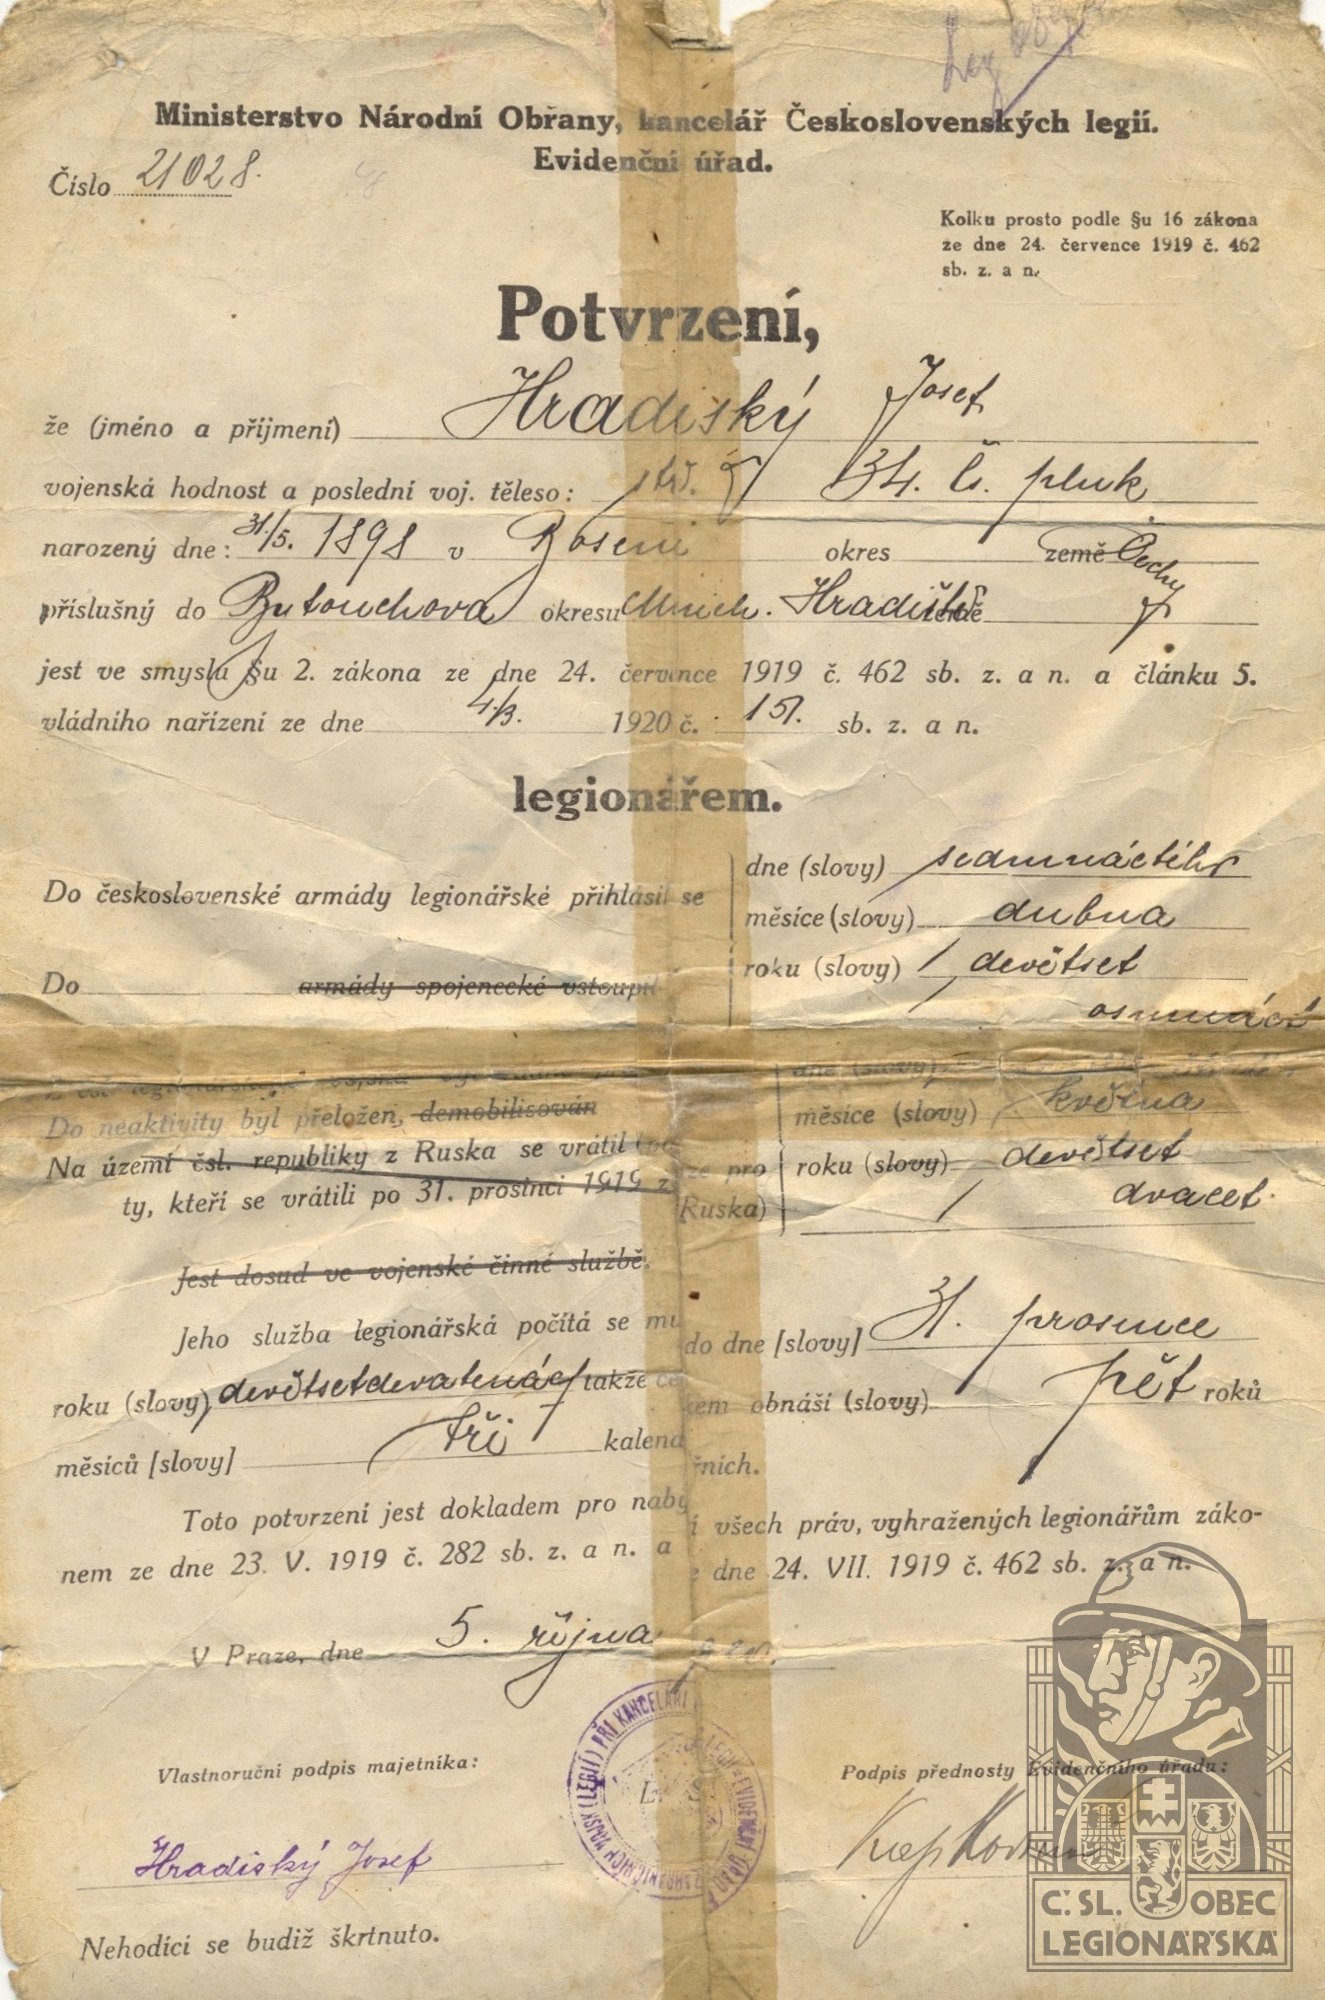 Leg
Ministerstvo Národní Obrany, kancelář Československých legií.
Evidenční úřad.
Číslo 21028.
Kolku prosto podle §u 16 zákona
ze dne 24. července 1919 č. 462
sb. z. a n.
Potvrzení,
že (jméno a příjmení) Hradiský Josef
vojenská hodnost a poslední voj. těleso: stř. 34. č. pluk
narozený dne: 31/5. 1898 v Boseni okres země Čechy
příslušný do Butouchova okresu Mnich. Hradiště země
jest ve smyslu §u 2. zákona ze dne 24. července 1919 č. 462 sb. z. a n. a článku 5.
vládního nařízení ze dne 4/3. 1920 č. 151. sb. z. a n.
legionářem.
Do československé armády legionářské přihlásil se
dne (slovy) sedmnáctého
měsíce (slovy) dubna
roku (slovy) 1 devětset
osmnáct
Do armády spojenecké vstoupil
dne (slovy)
Do neaktivity byl přeložen, demobilisován
měsíce (slovy) května
Na území čsl. republiky z Ruska se vrátil (po ze pro
roku (slovy) 1 devětset
ty, kteří se vrátili po 31. prosinci 1919 z Ruska)
dvacet.
Jest dosud ve vojenské činné službě.
Jeho služba legionářská počítá se mu do dne [slovy] 31. prosince
roku (slovy) devětsetdevatenáct takže celkem obnáší (slovy) pět roků
měsíců [slovy] tři kalendářních.
Toto potvrzení jest dokladem pro nabytí všech práv, vyhražených legionářům záko-
nem ze dne 23. V. 1919 č. 282 sb. z. a n. a ze dne 24. VII. 1919 č. 462 sb. z. a n.
V Praze, dne 5. října 920.
Vlastnoruční podpis majetníka:
Podpis přednosty Evidenčního úřadu:
Hradiský Josef
Nehodící se budiž škrtnuto.
Č.SL. OBEC
LEGIONÁŘSKÁ